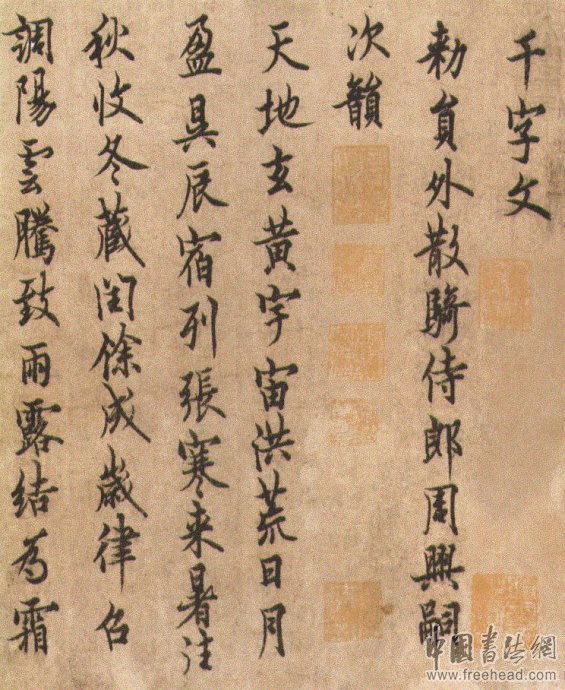 千字文
勅員外散騎侍郎周興嗣
次韻
天地玄黃宇宙洪荒日月
盈昃辰宿列張寒来暑往
秋收冬藏閏餘成歲律召
調陽雲騰致雨露結為霜
中國書法網
www.freehead.com